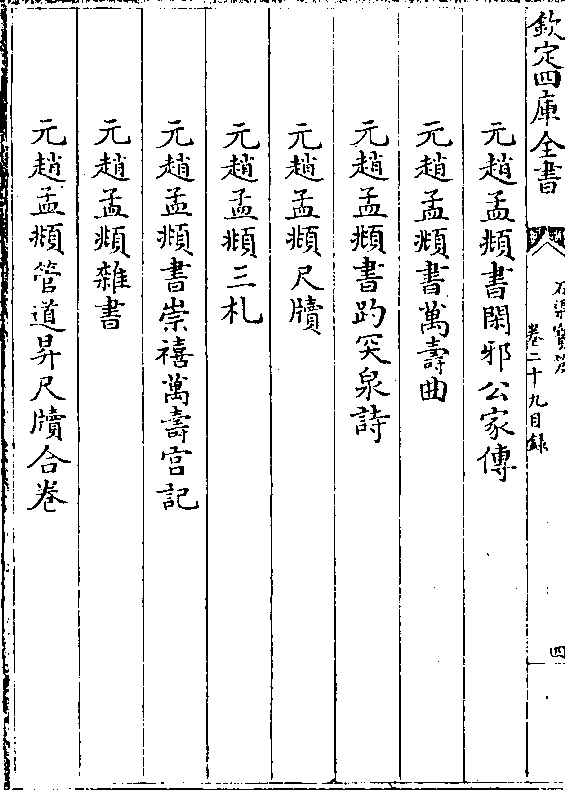 欽定四庫全書
石渠寶笈
卷二十九目錄
四
元趙孟頫書閑邪公家傳
元趙孟頫書萬壽曲
元趙孟頫書趵突泉詩
元趙孟頫尺牘
元趙孟頫三札
元趙孟頫書崇禧萬壽宮記
元趙孟頫雜書
元趙孟頫管道昇尺牘合卷